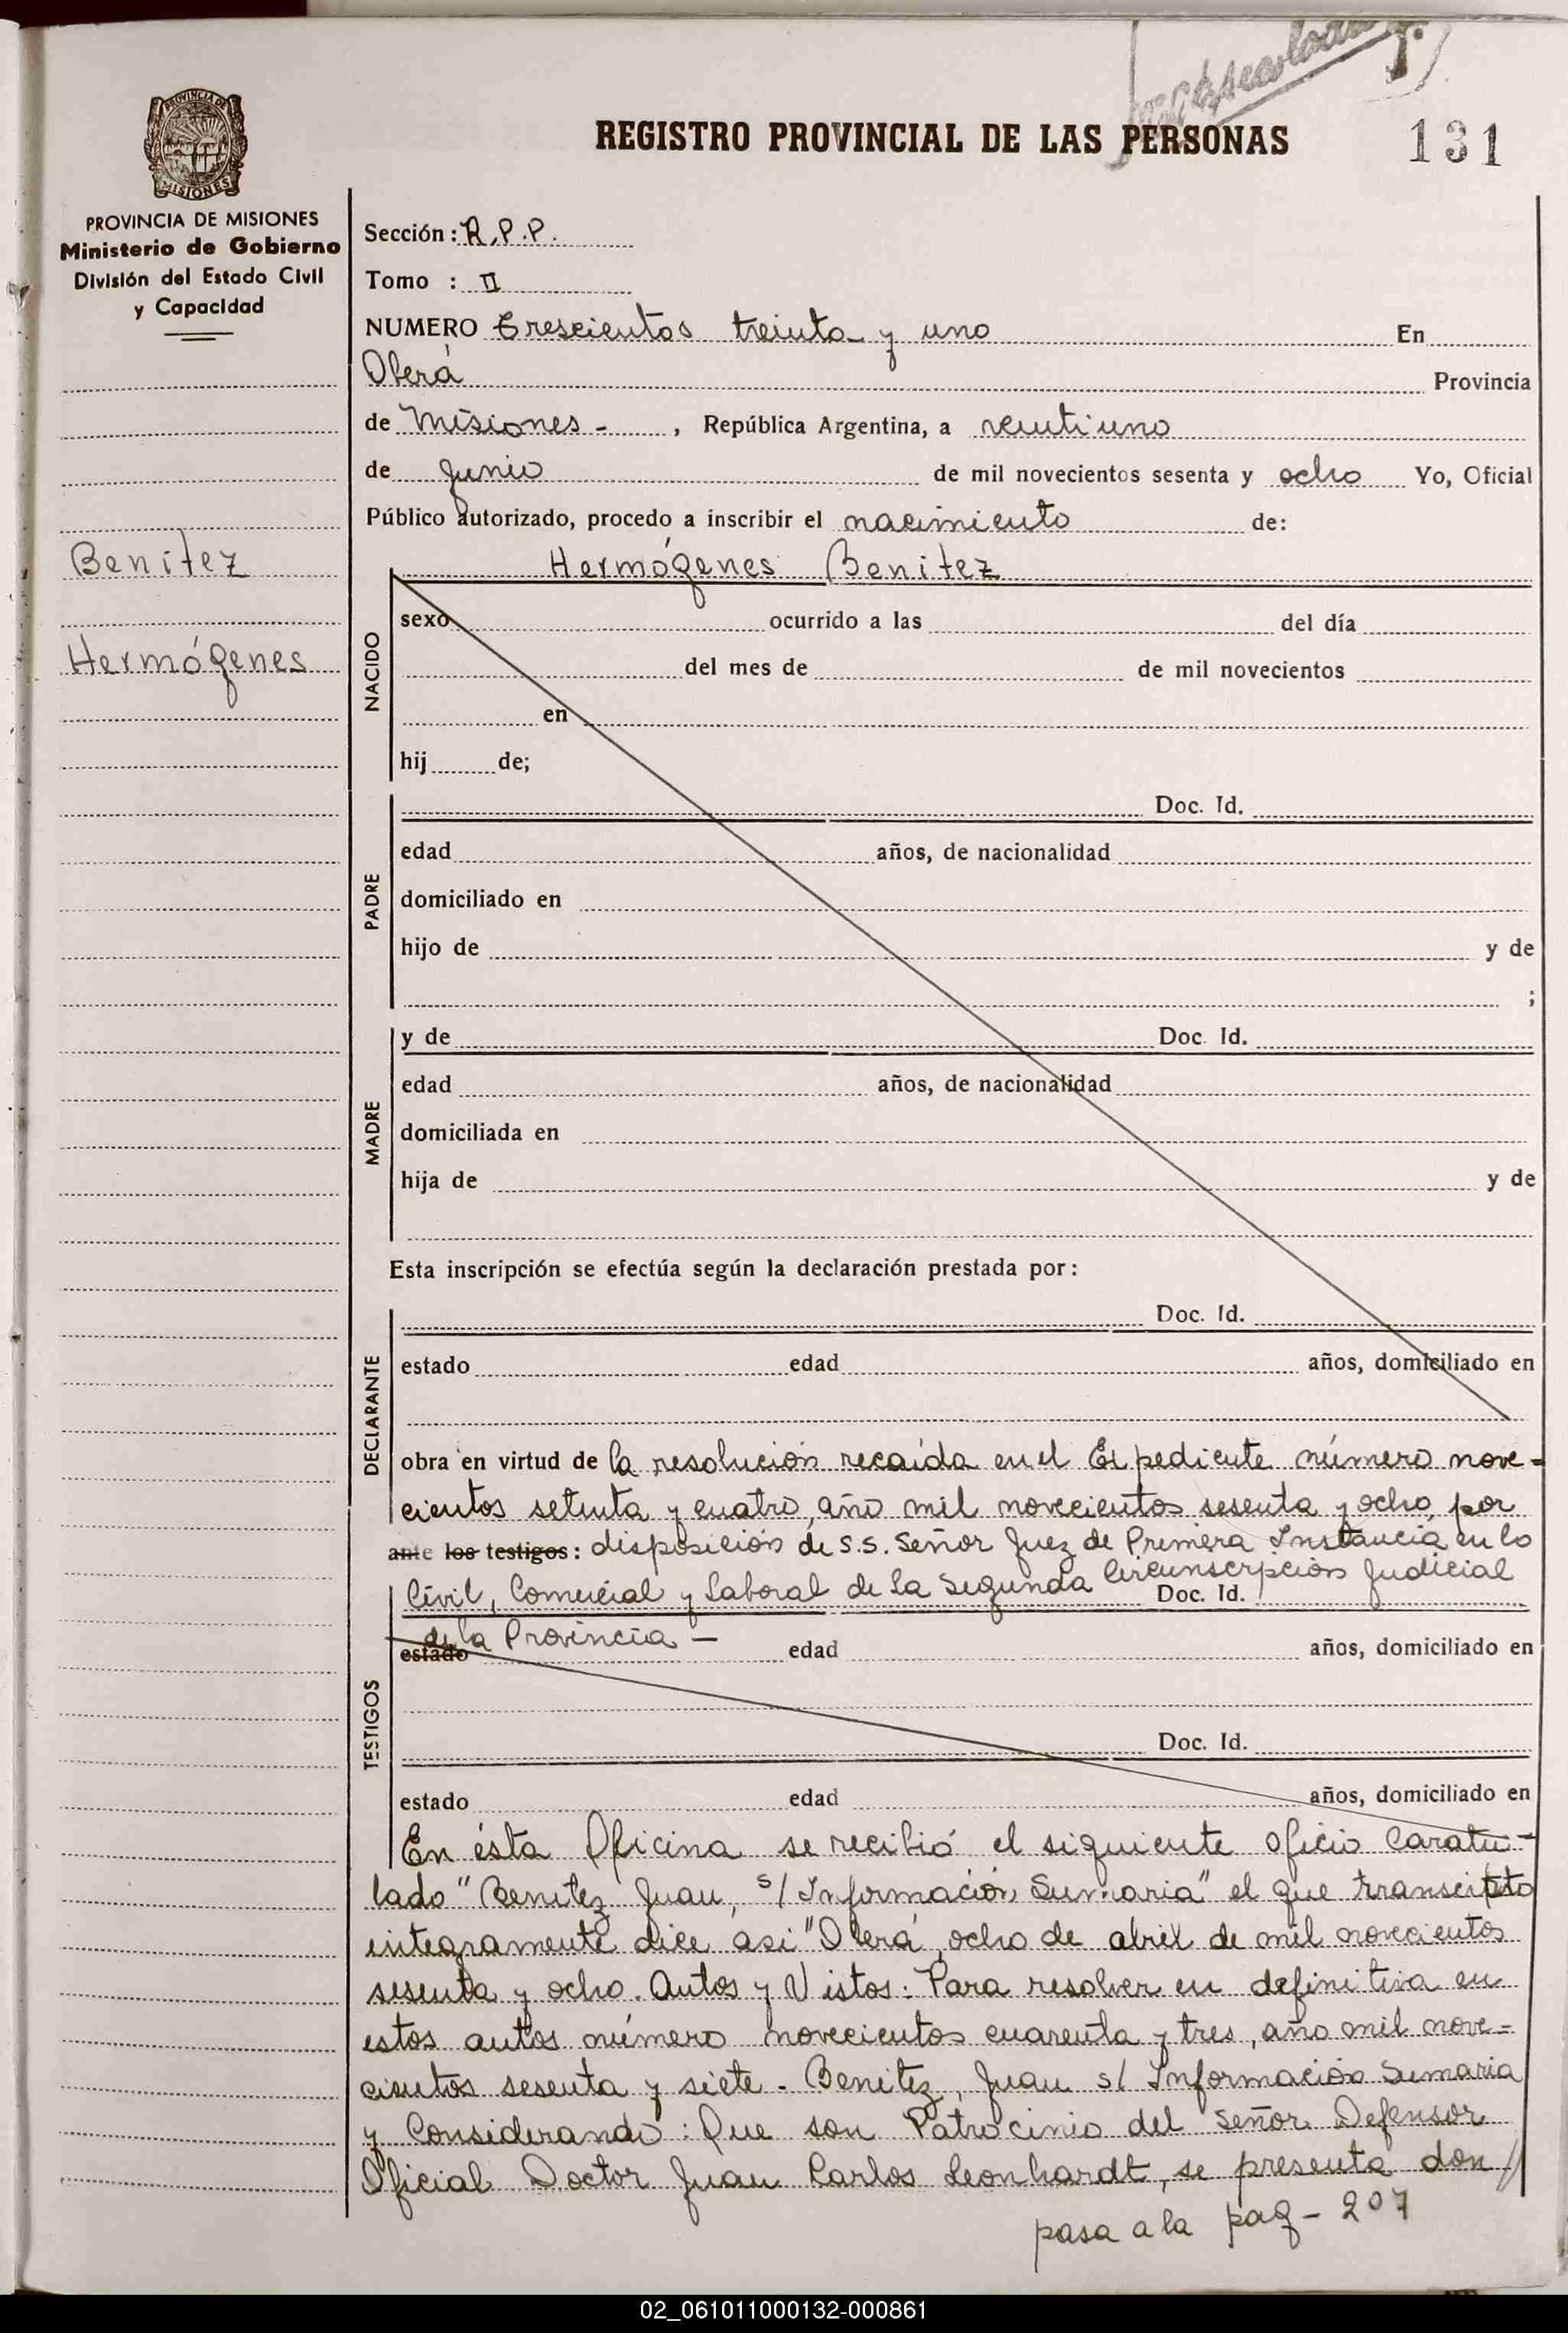 REGISTRO PROVINCIAL DE LAS PERSONAS
131
PROVINCIA DE
MISIONES
PROVINCIA DE MISIONES
Ministerio de Gobierno
División del Estado Civil
y Capacidad
Benítez
Hermógenes
Sección: R.P.P.
Tomo : II
NUMERO Trescientos treinta y uno En
Oberá Provincia
de Misiones - , República Argentina, a veintiuno
de junio de mil novecientos sesenta y ocho Yo, Oficial
Público autorizado, procedo a inscribir el nacimiento de:
Hermógenes Benitez
NACIDO
sexo ocurrido a las del día
del mes de de mil novecientos
en
hij de;
PADRE
Doc. Id.
edad años, de nacionalidad
domiciliado en
hijo de y de
;
MADRE
y de Doc. Id.
edad años, de nacionalidad
domiciliada en
hija de y de
Esta inscripción se efectúa según la declaración prestada por:
DECLARANTE
Doc. Id.
estado edad años, domiciliado en
obra en virtud de la resolución recaída en el Expediente número nove-
cientos setenta y cuatro, año mil novecientos sesenta y ocho, por
ante los testigos: disposición de S.S. Señor Juez de Primera Instancia en lo
Civil, Comercial y Laboral de la Segunda Circunscripción Judicial
Doc. Id.
de la Provincia -
TESTIGOS
estado edad años, domiciliado en
Doc. Id.
estado edad años, domiciliado en
En ésta Oficina se recibió el siguiente oficio Caratu-
lado "Benitez Juan, s/ Información Sumaria" el que transcripto
integramente dice asi "Oberá, ocho de abril de mil novecientos
sesenta y ocho. Autos y Vistos: Para resolver en definitiva en
estos autos número novecientos cuarenta y tres, año mil nove-
cientos sesenta y siete - Benitez, Juan s/ Información Sumaria
y Considerando: Que son Patrocinio del Señor Defensor
Oficial Doctor Juan Carlos Leonhardt, se presenta don //
pasa a la pag - 207
02_061011000132-000861